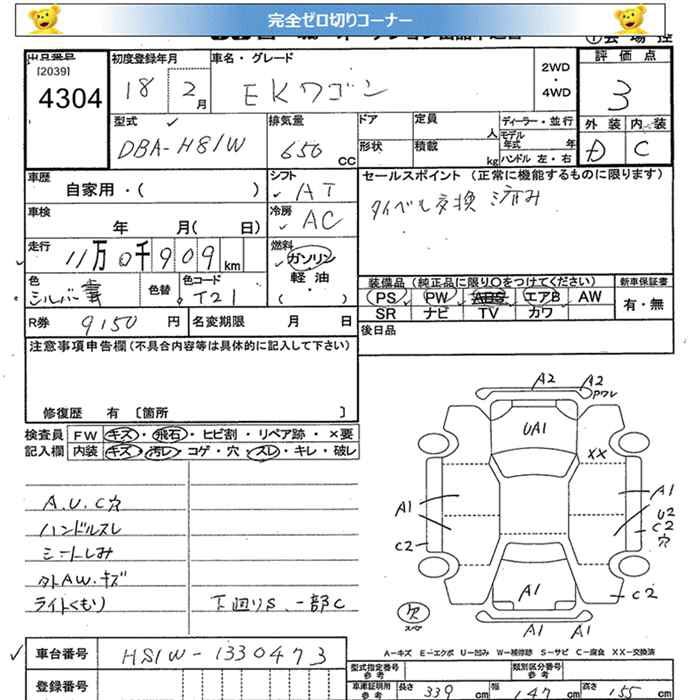 完全ゼロ切りコーナー
出品番号
[2039]
4304
初度登録年月
18 2 月
車名・グレード
EKワゴン
2WD
・
4WD
評価点
3
外装 内装
D C
型式
DBA-H81W
排気量
650 CC
ドア
定員 人
形状
積載 kg
ディーラー・並行
モデル年式 年
ハンドル 左・右
車歴
自家用・( )
シフト
AT
車検
年 月( 日)
冷房
AC
走行
11万0千909 km
燃料
ガソリン
軽油
( ・ )
色
シルバー
色替
色コード
T21
R券 9150 円
名変期限 月 日
セールスポイント (正常に機能するものに限ります)
タイベル交換済み
装備品 (純正品に限り○をつけてください)
PS PW ABS エアB AW
SR ナビ TV カワ
新車保証書
有・無
後日品
注意事項申告欄(不具合内容等は具体的に記入して下さい)
修復歴 有 [箇所 ]
検査員 FW キズ・飛石・ヒビ割・リペア跡・×要
記入欄 内装 キズ・汚レ・コゲ・穴・スレ・キレ・破レ
A.U.C穴
ハンドルスレ
シートしみ
タトAW.キズ
ライトくもり
下回りS、一部C
A2 A2
ワレ
UA1
XX
A1
C2
A1
U2
C2
穴
A1
C2
欠
スペア
A1 A1
A-キズ E-エクボ U-凹み W-補修跡 S-サビ C-腐食 XX-交換済
車台番号 H81W-1330473
登録番号
型式指定番号
参考
類別区分番号
参考
車庫証明用
参考
長さ 339 cm 幅 147 cm 高さ 155 cm